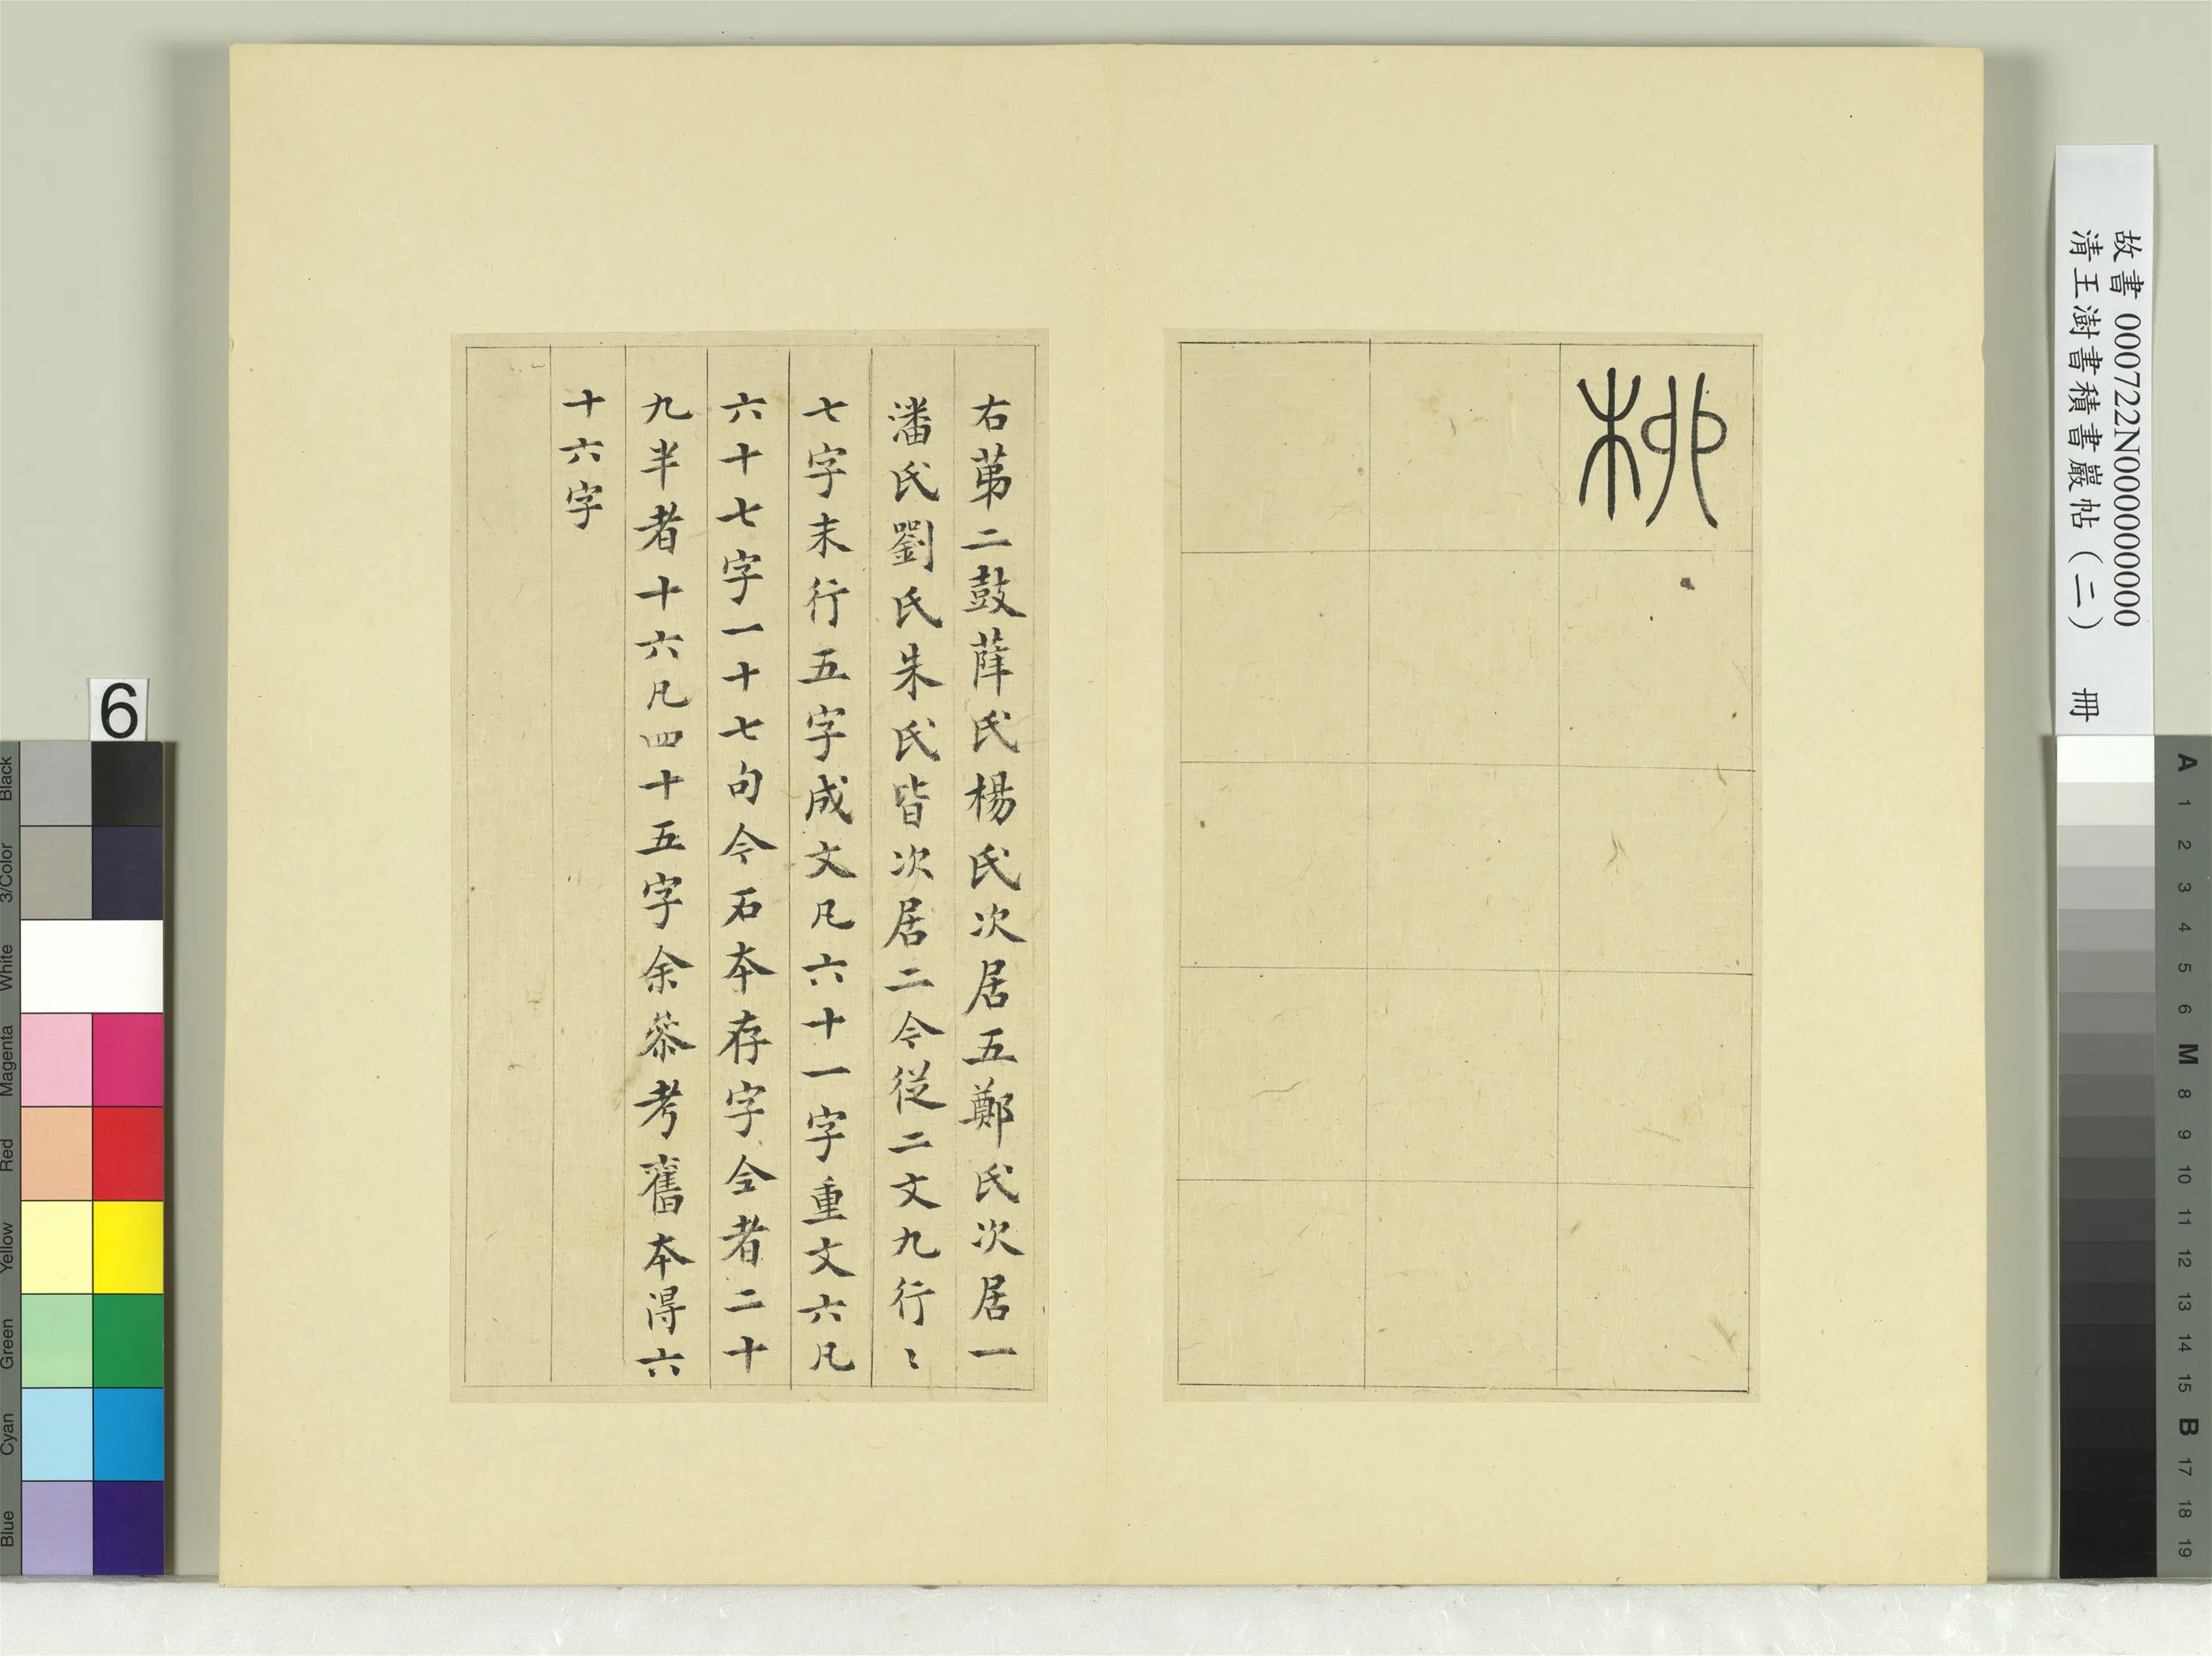 故書 000722N000000000
清王澍書積書巖帖（二） 冊
柳
右苐二鼓薛氏楊氏次居五鄭氏次居一
潘氏劉氏朱氏皆次居二今從二文九行〻
七字末行五字成文凡六十一字重文六凡
六十七字一十七句今石本存字全者二十
九半者十六凡四十五字余叅考舊本得六
十六字
6
Black
3/Color
White
Magenta
Red
Yellow
Green
Cyan
Blue
A 1 2 3 4 5 6 M 8 9 10 11 12 13 14 15 B 17 18 19